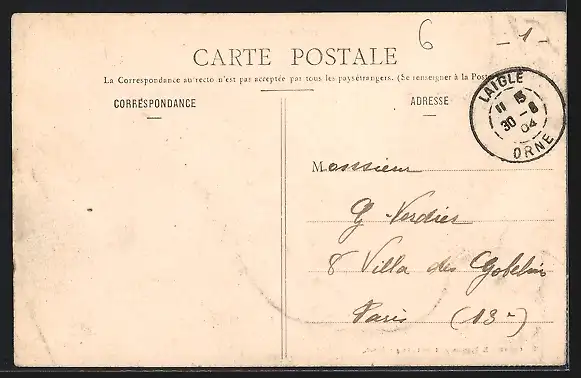 6
- 1 -
CARTE POSTALE
La Correspondance au recto n'est pas acceptée par tous les pays étrangers. (Se renseigner à la Poste
CORRESPONDANCE
ADRESSE
LAIGLE
11 15
30 - 8
04
ORNE
Monsieur
G Verdier
8 Villa des Gobelins
Paris (13e)